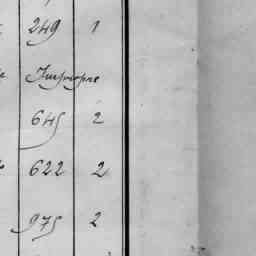 249 1
Impropre
645 2
622 2
975 2